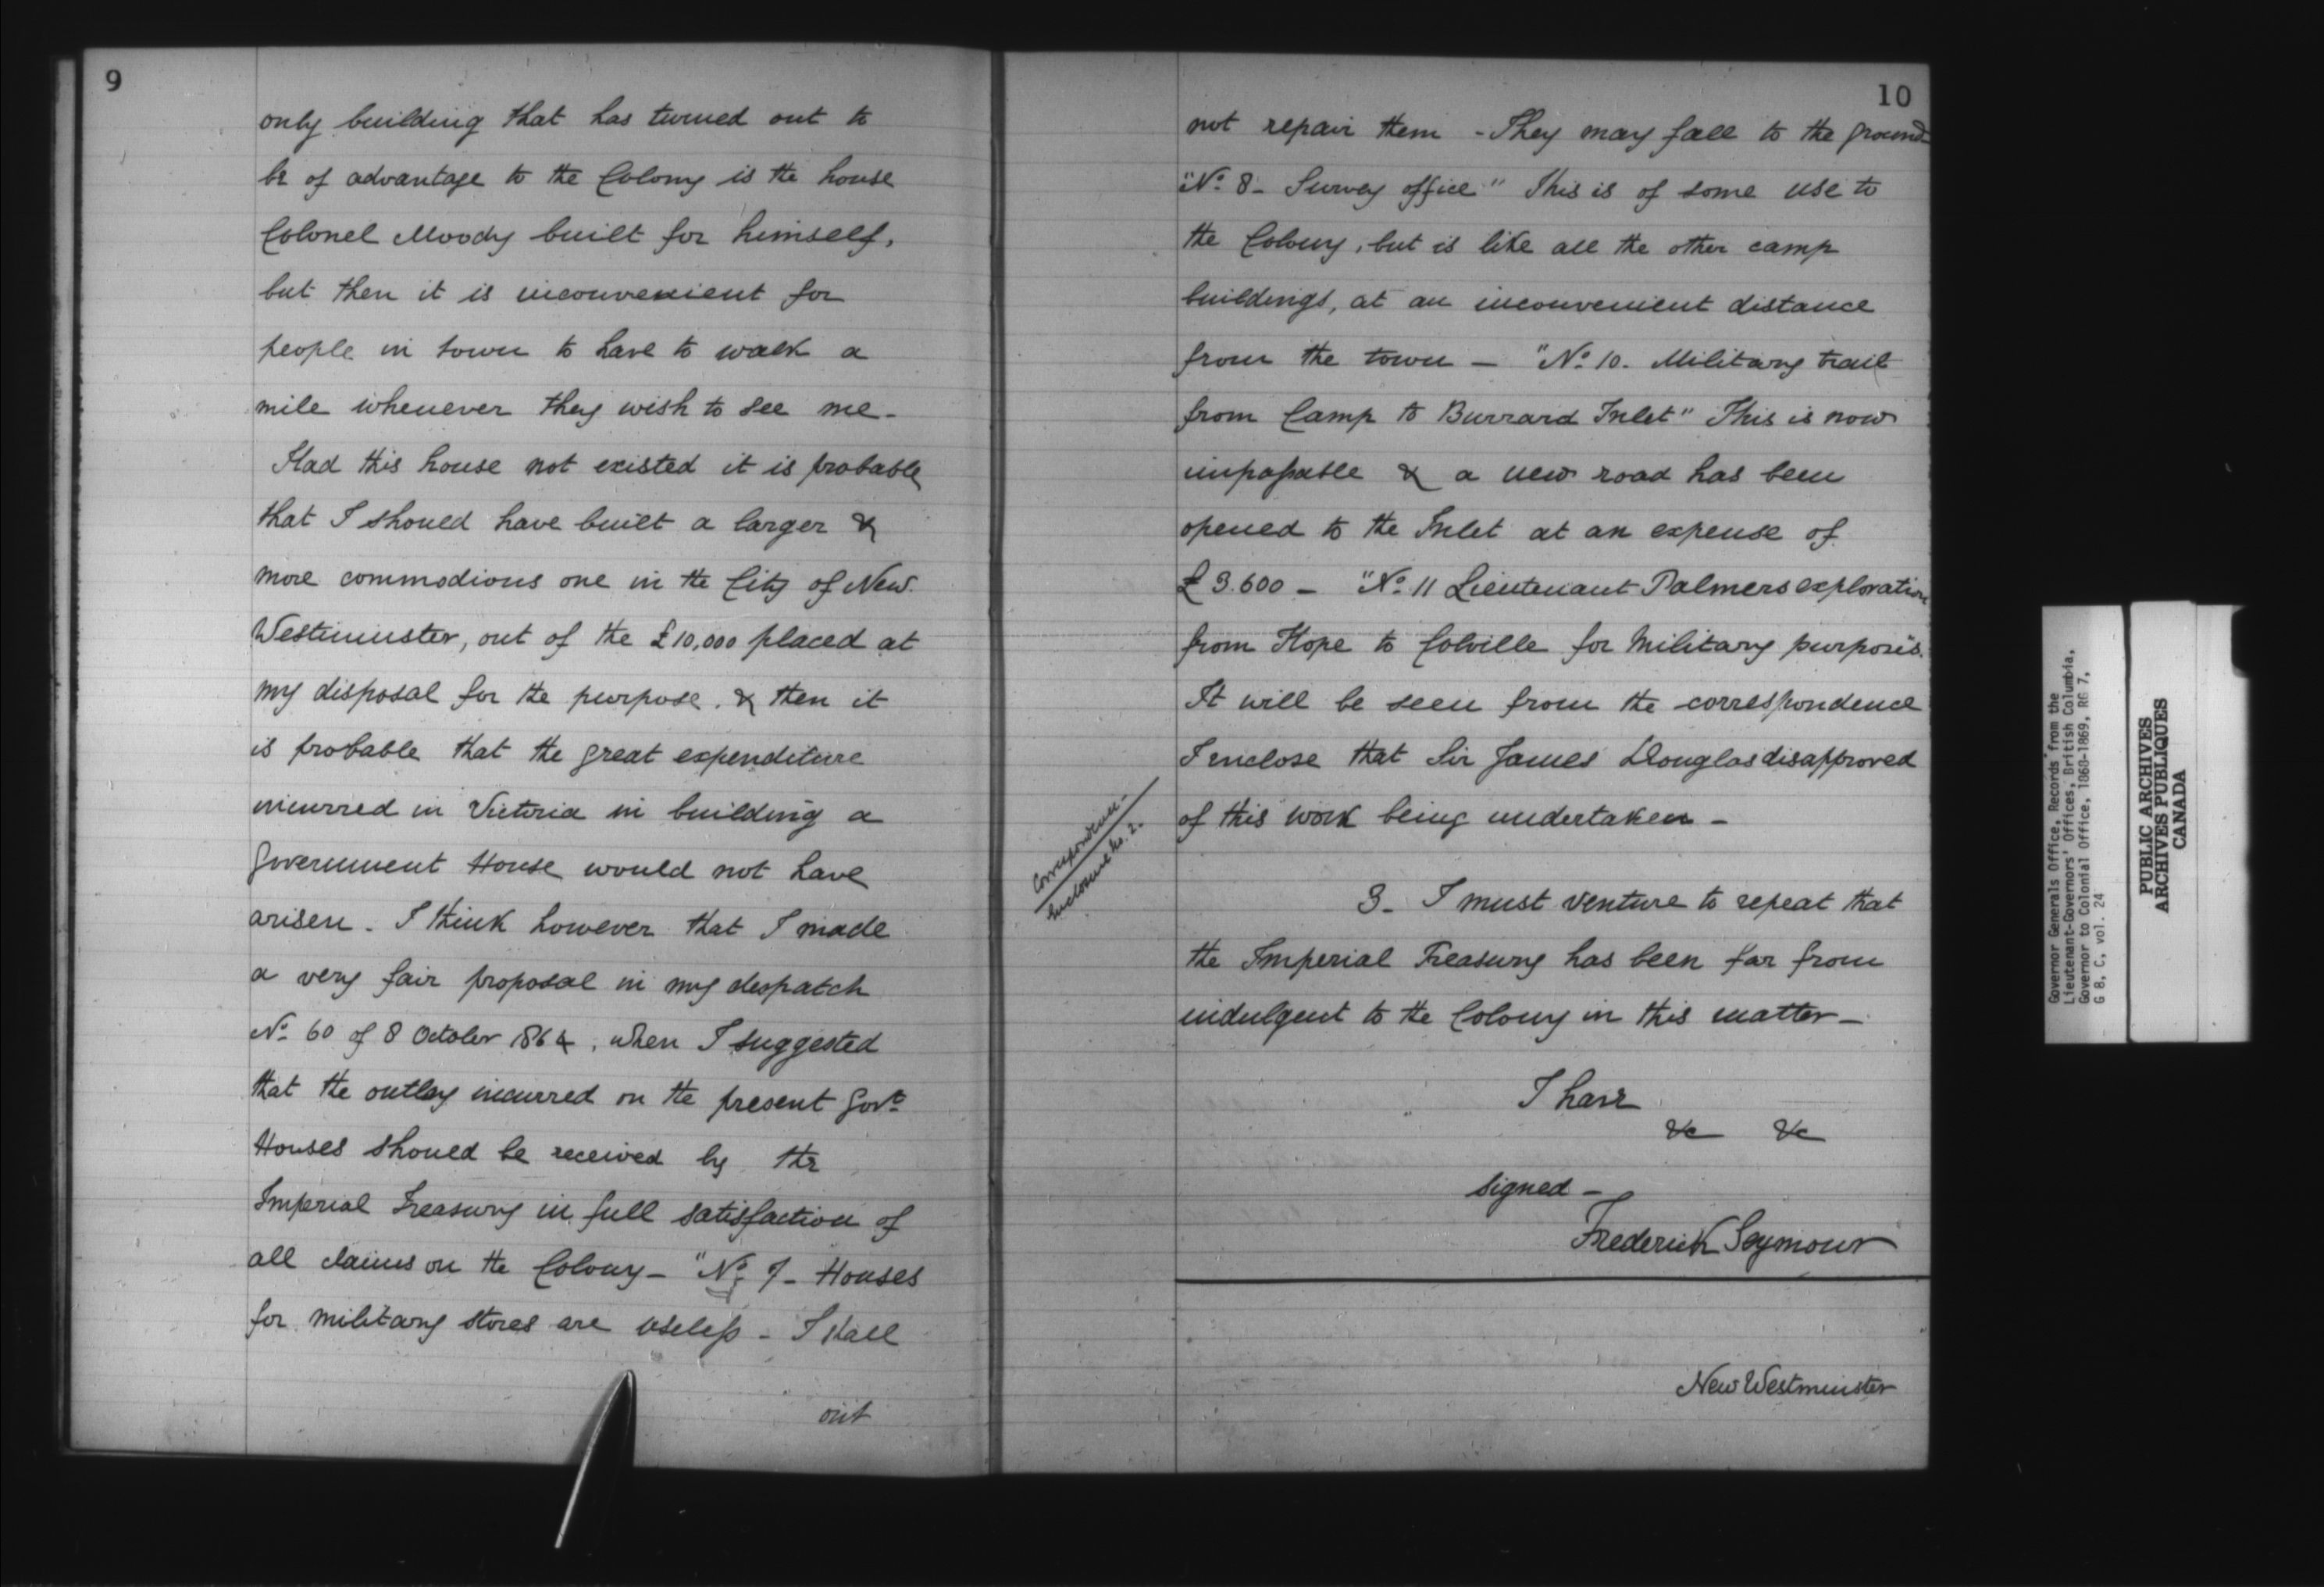 9
only building that has turned out to
be of advantage to the Colony is the house
Colonel Moody built for himself,
but then it is inconvenient for
people in town to have to walk a
mile whenever they wish to see me-
Had this house not existed it is probable
that I should have built a larger &
more commodious one in the City of New
Westminster, out of the £10,000 placed at
my disposal for the purpose. & then it
is probable that the great expenditure
incurred in Victoria in building a
Government House would not have
arisen. I think however that I made
a very fair proposal in my despatch
No. 60 of 8 October 1864, when I suggested
that the outlay incurred on the present Govt.
Houses should be received by the
Imperial Treasury in full satisfaction of
all claims on the Colony- "No. 7- Houses
for military stores are useless - I shall
not repair them - They may fall to the ground-
"No. 8- Survey office" This is of some use to
the Colony, but is like all the other camp
buildings, at an inconvenient distance
from the town - "No. 10. Military trail
from Camp to Burrard Inlet" This is now
impassable & a new road has been
opened to the Inlet at an expense of
£3.600 - "No. 11 Lieutenant Palmers exploration
from Hope to Colville for Military purposes.
It will be seen from the correspondence
I enclose that Sir James Douglas disapproved
of this work being undertaken -
Correspondence-
Enclosure No. 2.
3- I must venture to repeat that
the Imperial Treasury has been far from
indulgent to the Colony in this matter-
I have
&c &c
signed -
Frederick Seymour
New Westminster
10
Governor Generals Office, Records from the
Lieutenant-Governors' Offices, British Columbia,
Governor to Colonial Office, 1868-1869, RG 7,
G 8, C, vol. 24
PUBLIC ARCHIVES
ARCHIVES PUBLIQUES
CANADA